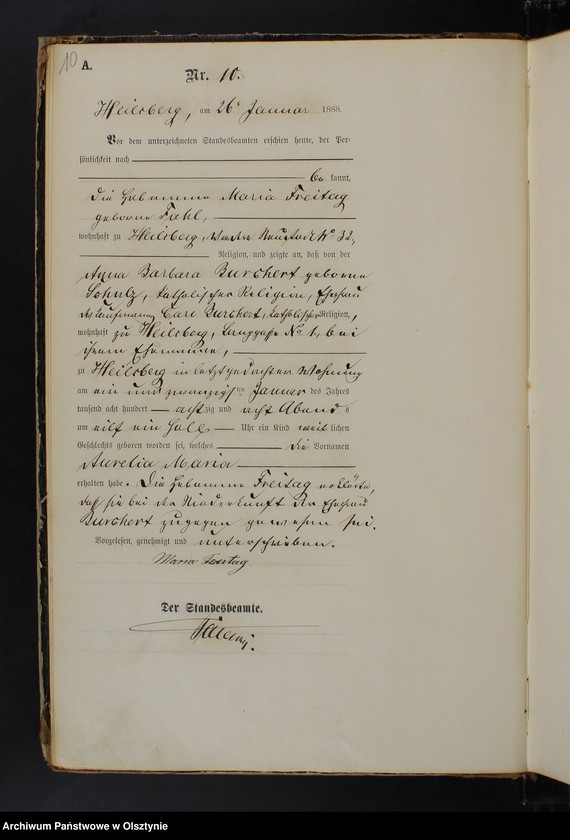 10
A.
Nr. 10.
Heilsberg, am 26. Januar 1888.
Vor dem unterzeichneten Standesbeamten erschien heute, der Per-
sönlichkeit nach
be kannt,
die Hebamme Maria Freitag
geborne Fahl,
wohnhaft zu Heilsberg, Neustadt No 32,
Religion, und zeigte an, daß von der
Anna Barbara Burchert geborne
Schulz, katholischer Religion, Ehefrau
des Kaufmanns Carl Burchert, katholischer Religion,
wohnhaft zu Heilsberg, No 1, bei
ihrem Ehemanne,
zu Heilsberg in letztgedachter Wohnung
am ein und zwanzigsten Januar des Jahres
tausend acht hundert achtzig und acht Abends
um eilf ein halb Uhr ein Kind weiblichen
Geschlechts geboren worden sei, welches die Vornamen
Aurelia Maria
erhalten habe. Die Hebamme Freitag erklärte,
daß sie bei der Niederkunft der Ehefrau
Burchert zugegen gewesen sei.
Vorgelesen, genehmigt und unterschrieben.
Maria Freitag
Der Standesbeamte.
Archiwum Państwowe w Olsztynie